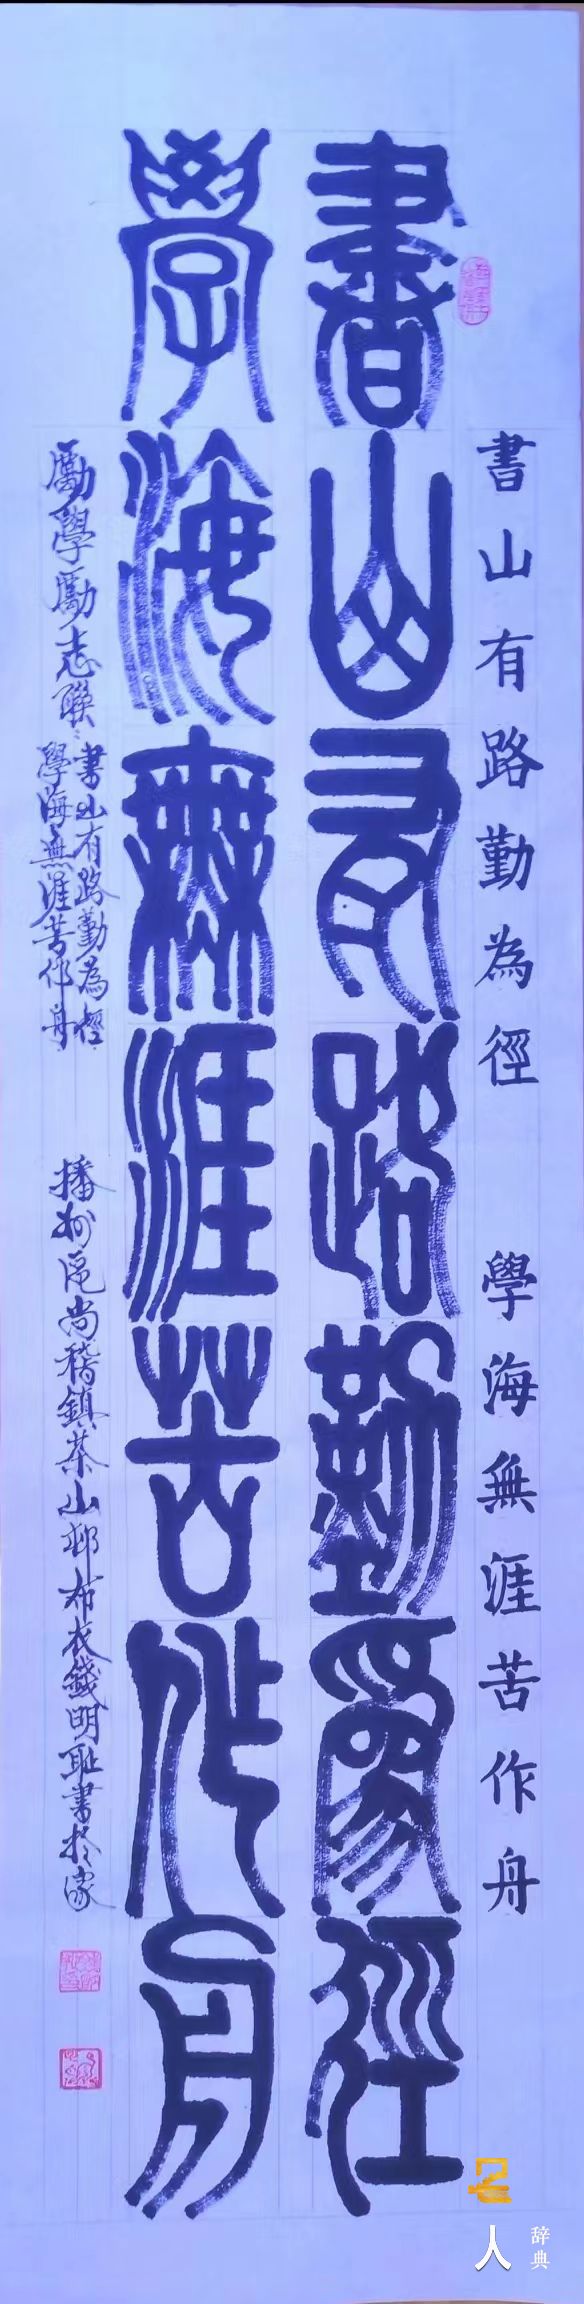 書山有路勤為徑 學海無涯苦作舟
書山有路勤為徑
學海無涯苦作舟
勵學勵志聯
書山有路勤為徑
學海無涯苦作舟
播州區尚稽鎮茶山邨布衣錢明耻書於家
名人
辞典